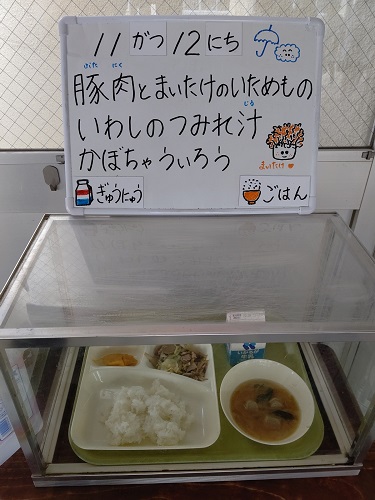 11がつ12にち
ぶた にく
豚肉とまいたけのいためもの
じる
いわしのつみれ汁
かぼちゃういろう
まいたけ
ぎゅうにゅう
ごはん